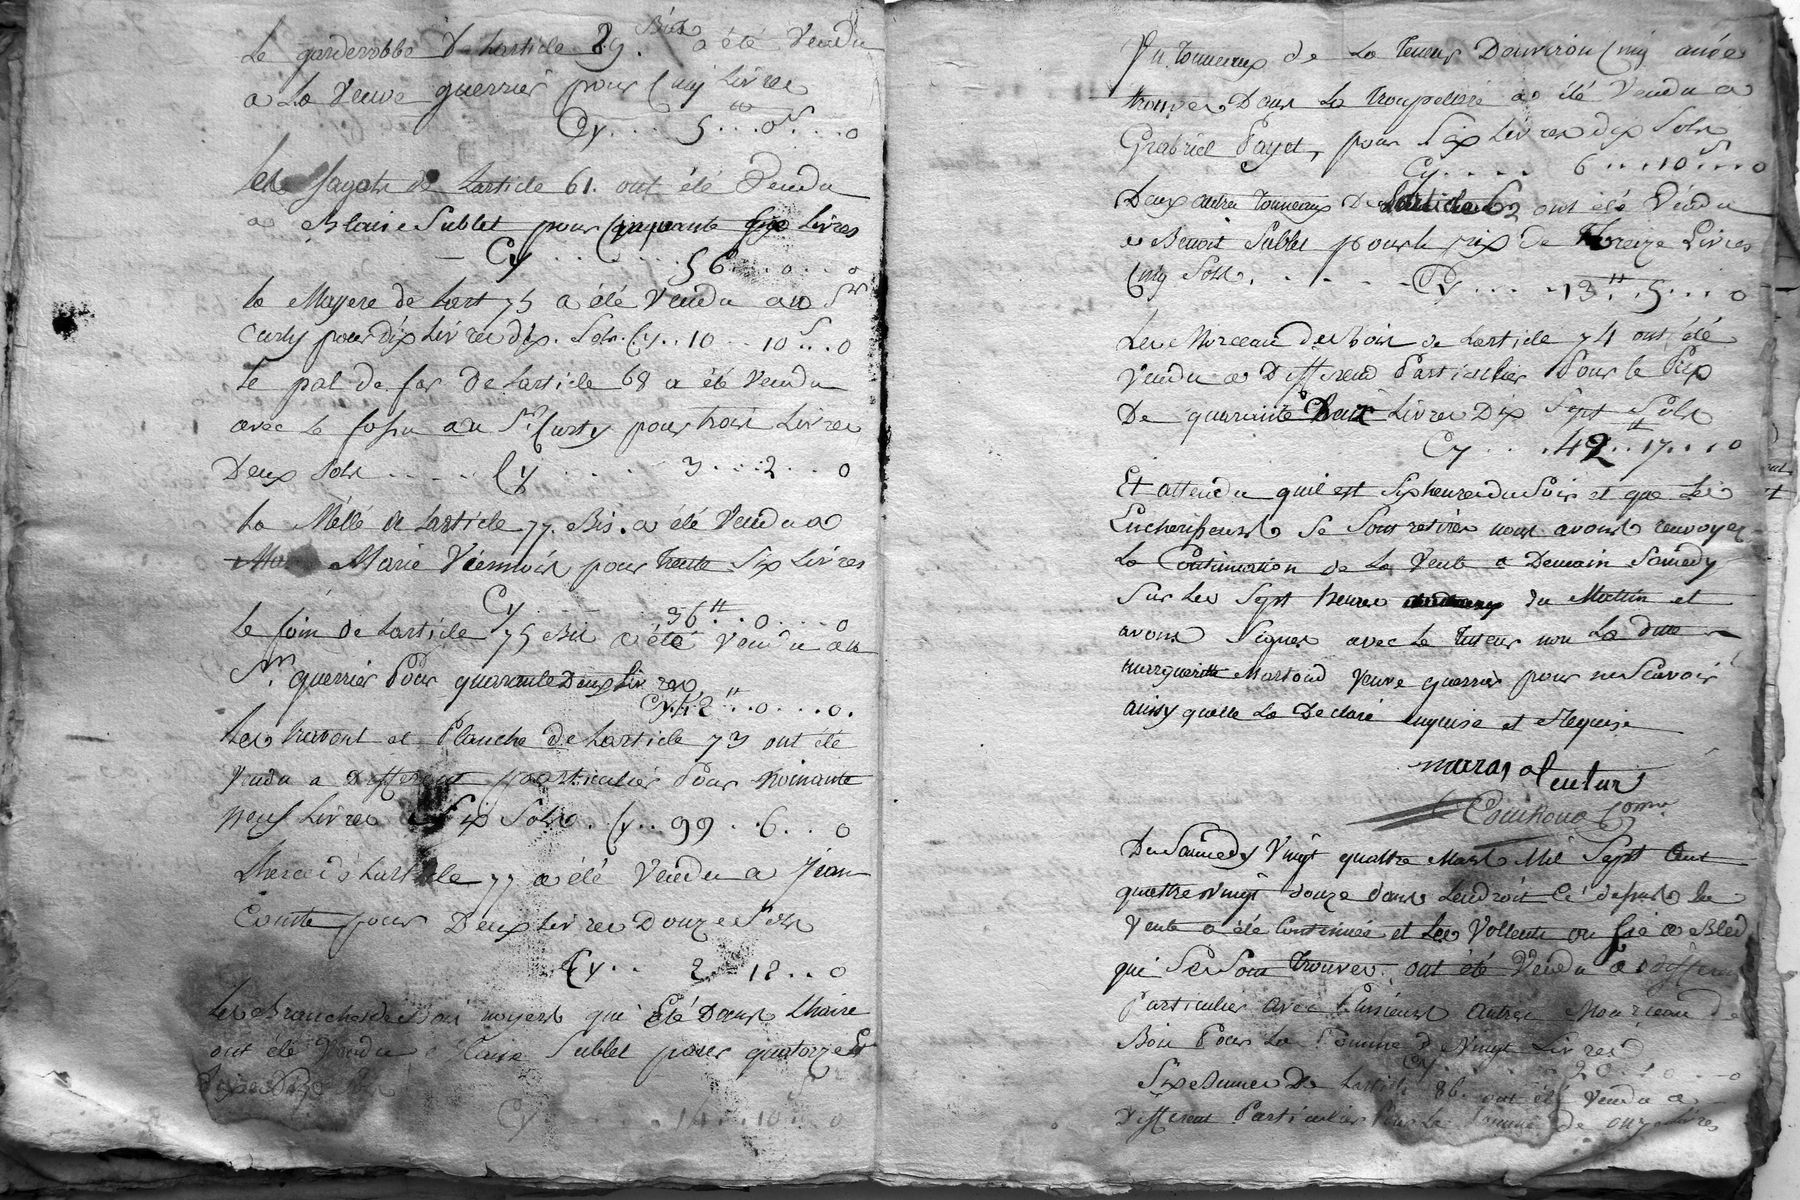 Le garderobbe De Larticle 89. Bis a été Vendu
a La Veuve guerrier pour Cinq Livres
Cy.... 5 ... 0 ... 0
Les fagots de Larticle 61. ont été Vendu
a Blaise Sublet pour Cinquante six Livres
Cy ........ 56 ... 0 ... 0
La Mayere de Lart 75 a été Vendu au Sr
Curty pour dix Livres dix Sols. Cy.. 10 .. 10 ... 0
Le pal de fer De Larticle 68 a été Vendu
avec Le au Sr Curty pour trois Livres
Deux Sols ..... Cy ...... 3 ... 2 ... 0
La Mêlé de Larticle 77. Bis. a été Vendu a
Marie pour trente Six Livres
Cy ..... 36 ... 0 .... 0
Le foin de Larticle 75 Bis a été Vendu au
Sr. guerrier Pour quarante Deux Livres
Cy. 42 ... 0 ... 0.
Les et Planche de Larticle 73 ont été
Vendu a different particulier Pour Noinante
Neuf Livres Six Sols. Cy.. 99 .. 6 ... 0
Larticle 77 a été Vendu a Jean
Comte pour Deux Livres Douze Sols
Cy... 2 .. 12 ... 0
Les Branches de Bois noyers qui Eté Dans Lhaire
ont été Vendu a Blaise Sublet pour quatorze
Livres Dix Sols
Cy ....... 14 .. 10 ... 0
Un tonneaux de La teneur Denviron Cinq anée
trouver Dans La a été Vendu a
Gabriel Payet, pour Six Livres dix Sols
Cy..... 6 ... 10 ... 0
Deux autre tonneaux De Larticle 62 ont été Vendu
a Benoit Sublet pour le prix de treize Livres
Cinq Sols ....... Cy .... 13 .. 5 ... 0
Les Morceau de Bois de Larticle 74 ont été
Vendu a Differend Particulier Pour le Prix
De quarante Deux Livres Dix Sept Sols
Cy .... 42 .. 17 ... 0
Et attendu quil est Six heures du Soir et que Les
Encherisseurs Se Sont retirés nous avons renvoyer
La Continuation de La Vente a Demain Samedy
Sur Les Sept heures du Mattin et
avons Signer avec Le tuteur non La ditte
marguerite Veuve guerrier pour ne Scavoir
ainsy quelle La Declaré enquise et Requise
tuteur
Du Samedy Vingt quattre Mars Mil Sept Cent
quattre vingt douze dans Lendroit Ci dessus La
Vente a été Continuée et Les ou a Bled
qui Se Sont trouver ont été Vendu a differend
Particulier avec Plusieurs autre Morceau de
Bois Pour La Somme de Vingt Livres
Cy ...... 20 ... 0 ... 0
Six de Larticle 86. ont été Vendu a
Different Particulier Pour La Somme de onze Livres